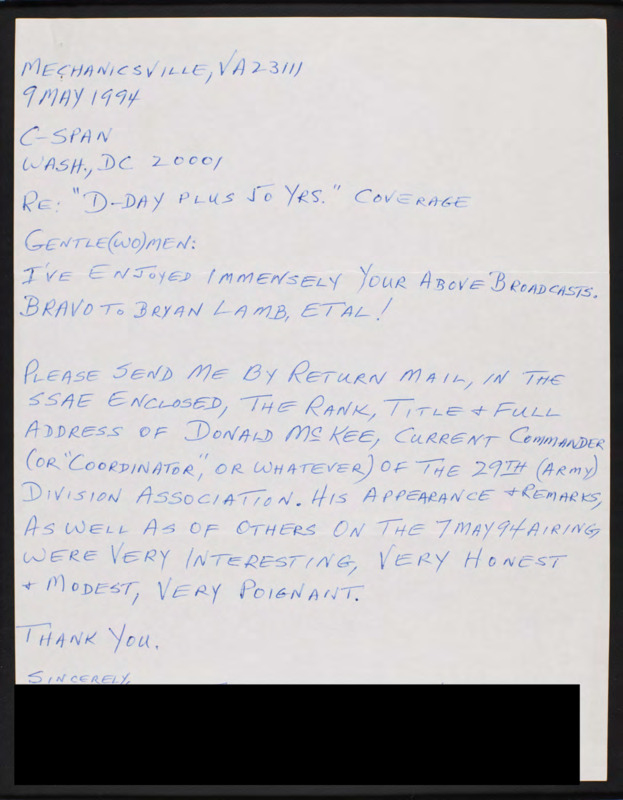 MECHANICSVILLE, VA 23111
9 MAY 1994
C-SPAN
WASH., DC 20001
RE: "D-DAY PLUS 50 YRS." COVERAGE
GENTLE(WO)MEN:
I'VE ENJOYED IMMENSELY YOUR ABOVE BROADCASTS.
BRAVO TO BRYAN LAMB, ET AL!
PLEASE SEND ME BY RETURN MAIL, IN THE
SSAE ENCLOSED, THE RANK, TITLE & FULL
ADDRESS OF DONALD McKEE, CURRENT COMMANDER
(OR "COORDINATOR", OR WHATEVER) OF THE 29TH (ARMY)
DIVISION ASSOCIATION. HIS APPEARANCE & REMARKS,
AS WELL AS OF OTHERS ON THE 7 MAY 94 AIRING,
WERE VERY INTERESTING, VERY HONEST
& MODEST, VERY POIGNANT.
THANK YOU.
SINCERELY,